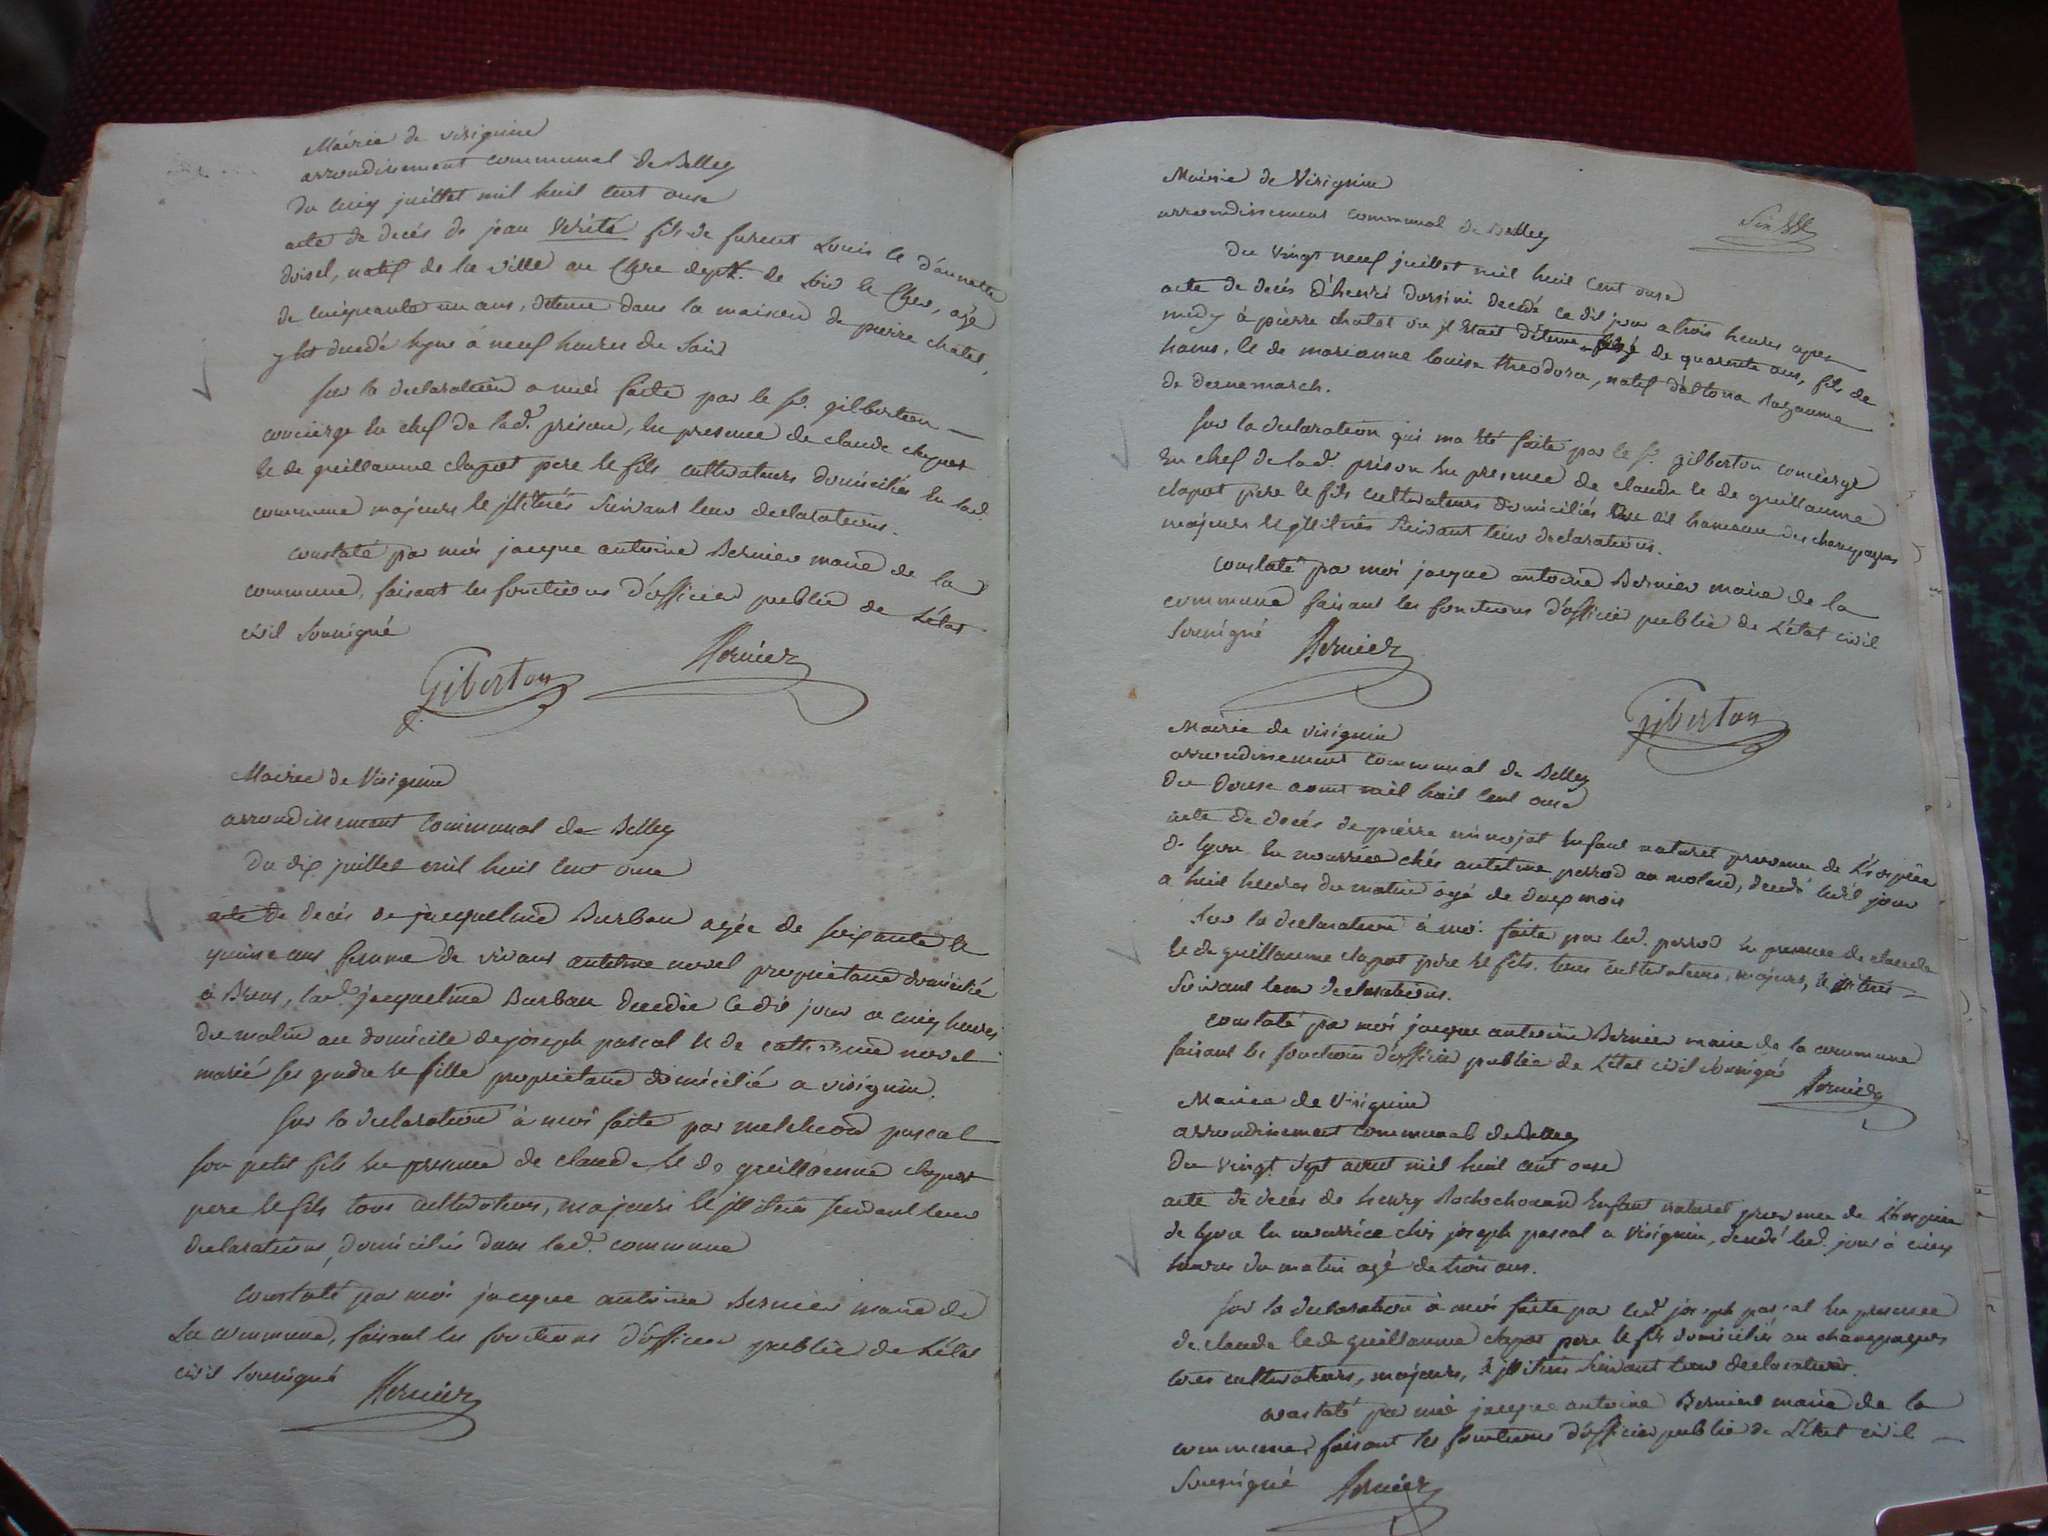 Mairie de virignin
arrondissement communal de Belley
du cinq juillet mil huit cent onze
acte de decés de jean Verité fils de furent Louis et d'annette
doisel, natif de la ville au Clere dept. de Loir et Cher, agé
de cinquante un ans, detenu dans la maison de pierre chatel,
y est decedé hyer à neuf heures du soir
sur la declaration a moi faite par le sr. gilberton
concierge en chef de lad. prison, en presence de claude clapot
et de guillaume clapot pere et fils cultivateurs domiciliés en lad.
commune majeurs et illitrés suivant leur declarations.
constaté par moi jacque antoine Bernier maire de la
commune, faisant les fonctions d'officier public de L'état
civil soussigné
Giberton Bernier
Mairie de Virignin
arrondissement communal de Belley
du dix juillet mil huit cent onze
acte de decés de jacqueline Burbau agée de soixante et
quinze ans femme de vivant antelme novel proprietaire domicilié
à Brens, lad. jacqueline Burbau decedée ledit jour a cinq heures
du matin au domicile de joseph pascal et de catherine novel
mariés ses gendre et fille proprietaire domicilié a virignin.
sur la declaration à moi faite par melchiord pascal
son petit fils en presence de claude et de guillaume clapot
pere et fils tous cultivateurs, majeurs et illitrés suivant leur
declarations, domiciliés dans lad. commune
constaté par moi jacque antoine Bernier maire de
La commune, faisant les fonctions d'officier public de L'état
civil soussigné
Bernier
Mairie de Virignin
arrondissement communal de Belley
du vingt neuf juillet mil huit cent onze
acte de decés d'henri dorsini decedé ce dit jour a trois heures apres
midy à pierre chatel ou il etait détenu agé de quarante ans, fils de
hams, et de marianne louise theodora, natif d'altona Royaume
de dennemarch.
sur la declaration qui ma été faite par le sr. gilberton concierge
en chef de lad. prison en presence de claude et de guillaume
clapot pere et fils cultivateurs domiciliés au dit hameau des champagnes
majeurs et illitrés suivant leur declarations.
constaté par moi jacque antoine Bernier maire de la
commune faisant les fonctions d'officier public de L'état civil
soussigné Bernier
Giberton
Mairie de virignin
arrondissement communal de Belley
du douze aout mil huit cent onze
acte de decés de pierre enfant naturel provenu de L'hospice
de lyon en nourrice chés antelme perrod au molard, decedé ledit jour
a huit heures du matin agé de douze mois
sur la declaration à moi faite par led. perrod en presence de claude
et de guillaume clapot pere et fils tous cultivateurs, majeurs, et illitrés
suivant leur declarations.
constaté par moi jacque antoine Bernier maire de la commune
faisant les fonctions d'officier public de L'état civil soussigné Bernier
Mairie de Virignin
arrondissement communal de Belley
du vingt sept aout mil huit cent onze
acte de decés de henry Rochechouard enfant naturel provenu de L'hospice
de lyon en nourrice chés joseph pascal a virignin, decedé led. jour à cinq
heures du matin agé de trois ans.
sur la declaration à moi faite par led. joseph pascal en presence
de claude et de guillaume clapot pere et fils domiciliés au champagnes
tous cultivateurs, majeurs, et illitrés suivant leur declaration.
constaté par moi jacque antoine Bernier maire de la
commune, faisant les fonctions d'officier public de L'état civil
soussigné Bernier